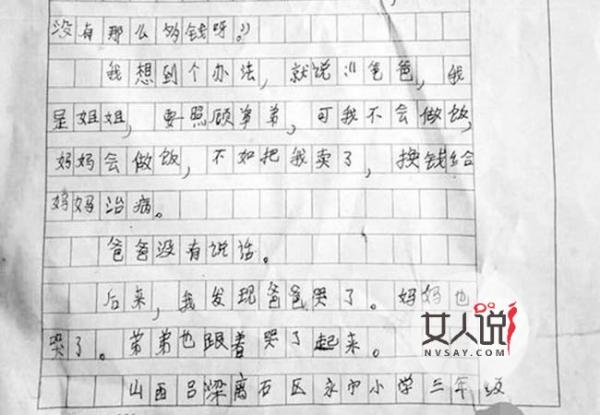 没有那么多钱呀。”
我想到个办法，就说：“爸爸，我
是姐姐，要照顾弟弟，可我不会做饭，
妈妈会做饭，不如把我卖了，换钱给
妈妈治病。
爸爸没有说话。
后来，我发现爸爸哭了。妈妈也
哭了。弟弟也跟着哭了起来。
山西吕梁离石区永宁小学三年级
女人说
NVSAY.COM